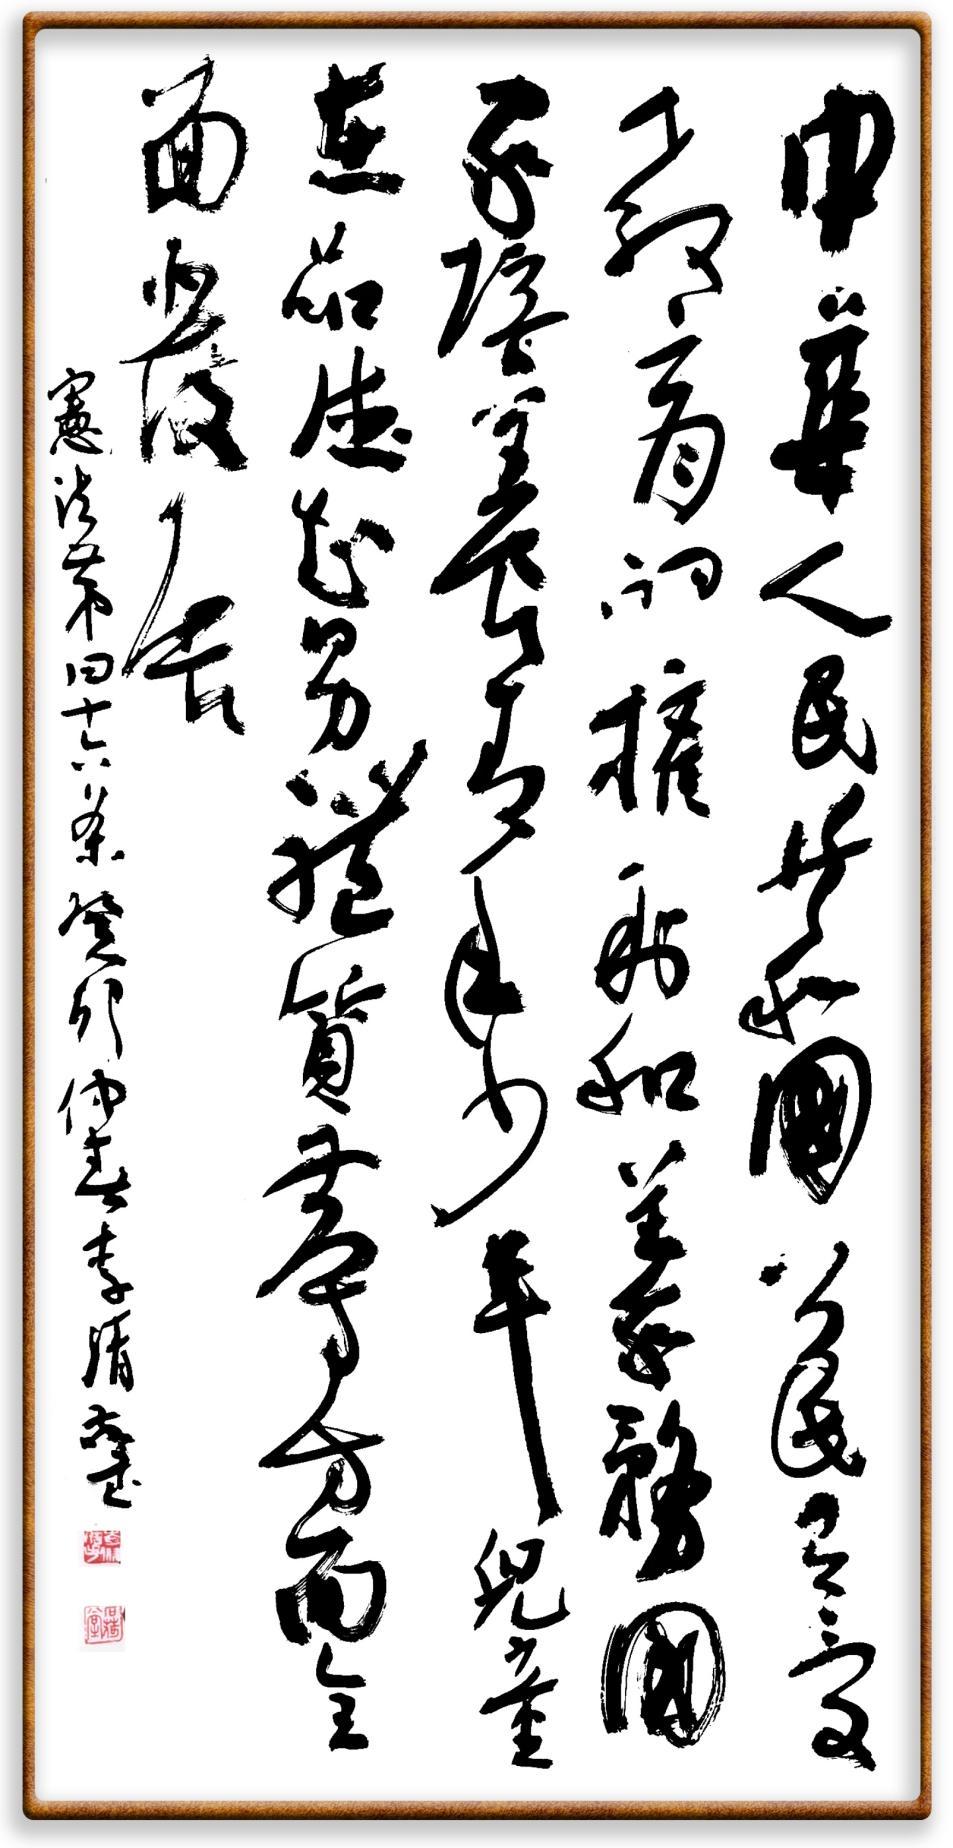 中華人民共和國公民有受
教育的權利和義務國
家培養青年少年兒童
在品德智力體質等方面全
面發展
憲法第四十六條癸卯仲春李清